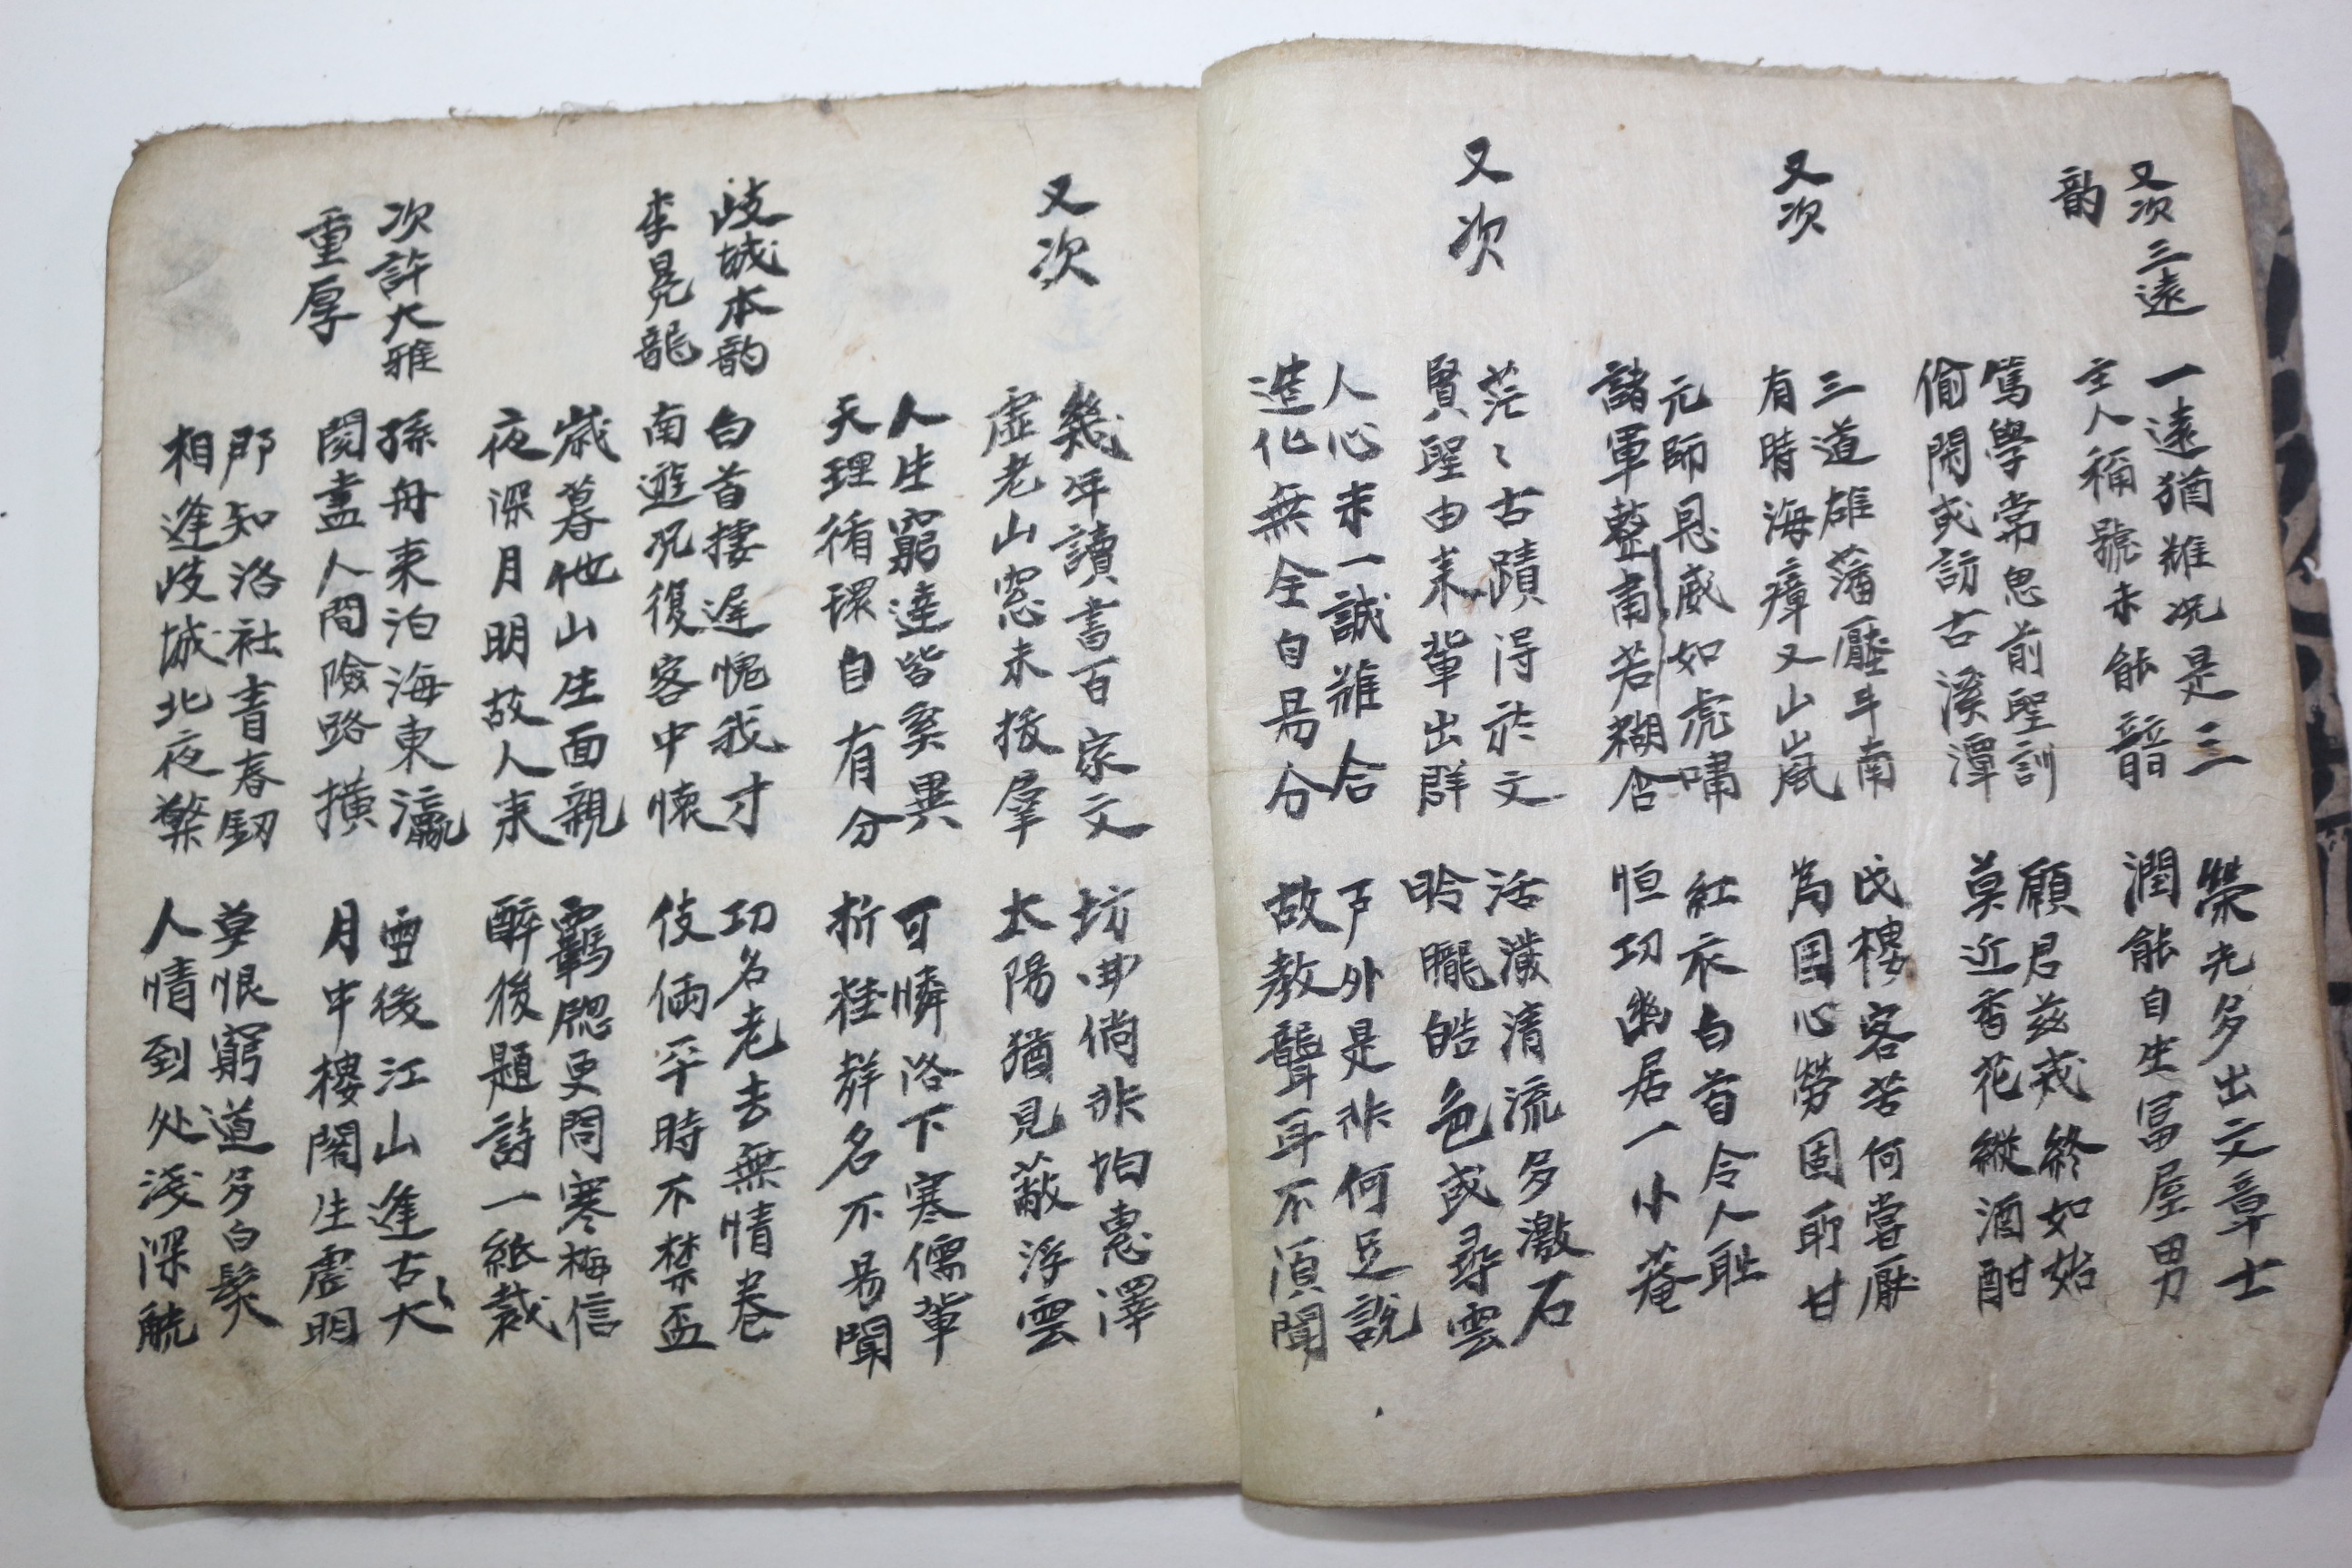 又次三遠
韵
一遠猶難况是三
主人稱號未能諳
榮光多出文章士
潤能自生冨屋男
篤學常思前聖訓
偷閑或訪古溪潭
願君茲戒終如始
莫近香花縱酒酣
又次
三道雄藩壓斗南
有時海瘴又山嵐
戍樓客苦何嘗厭
為國心勞固所甘
元師恩威如虎嘯
諸軍整肅若糊含
紅衣白首令人耻
恒切幽居一小菴
又次
茫〻古蹟得於文
賢聖由来輩出群
活潑清流多激石
昤朧皓色或尋雲
人心未一誠難合
造化無全自昜分
戶外是非何足説
故教聾耳不湏聞
又次
幾年讀書百家文
虛老山窓未拔羣
坊曲倘非怕惠澤
太陽猶見蔽浮雲
人生窮達皆奚異
天理循環自有分
可憐洛下寒儒輩
折桂群名不昜聞
岐城本韵
李晃龍
白首捿遲愧我才
南遊况復客中懷
功名老去無情卷
伎倆平時不禁盃
歲暮他山生面親
夜深月明故人来
羈愁更問寒梅信
醉後題詩一紙裁
次許大雅
重厚
孫舟来泊海東瀛
閱盡人間險路橫
雪後江山逢古大
月中樓閣生虛明
郡知洛社青春釼
相逢岐城北夜檠
莫恨窮道多白髮
人情到处淺深觥